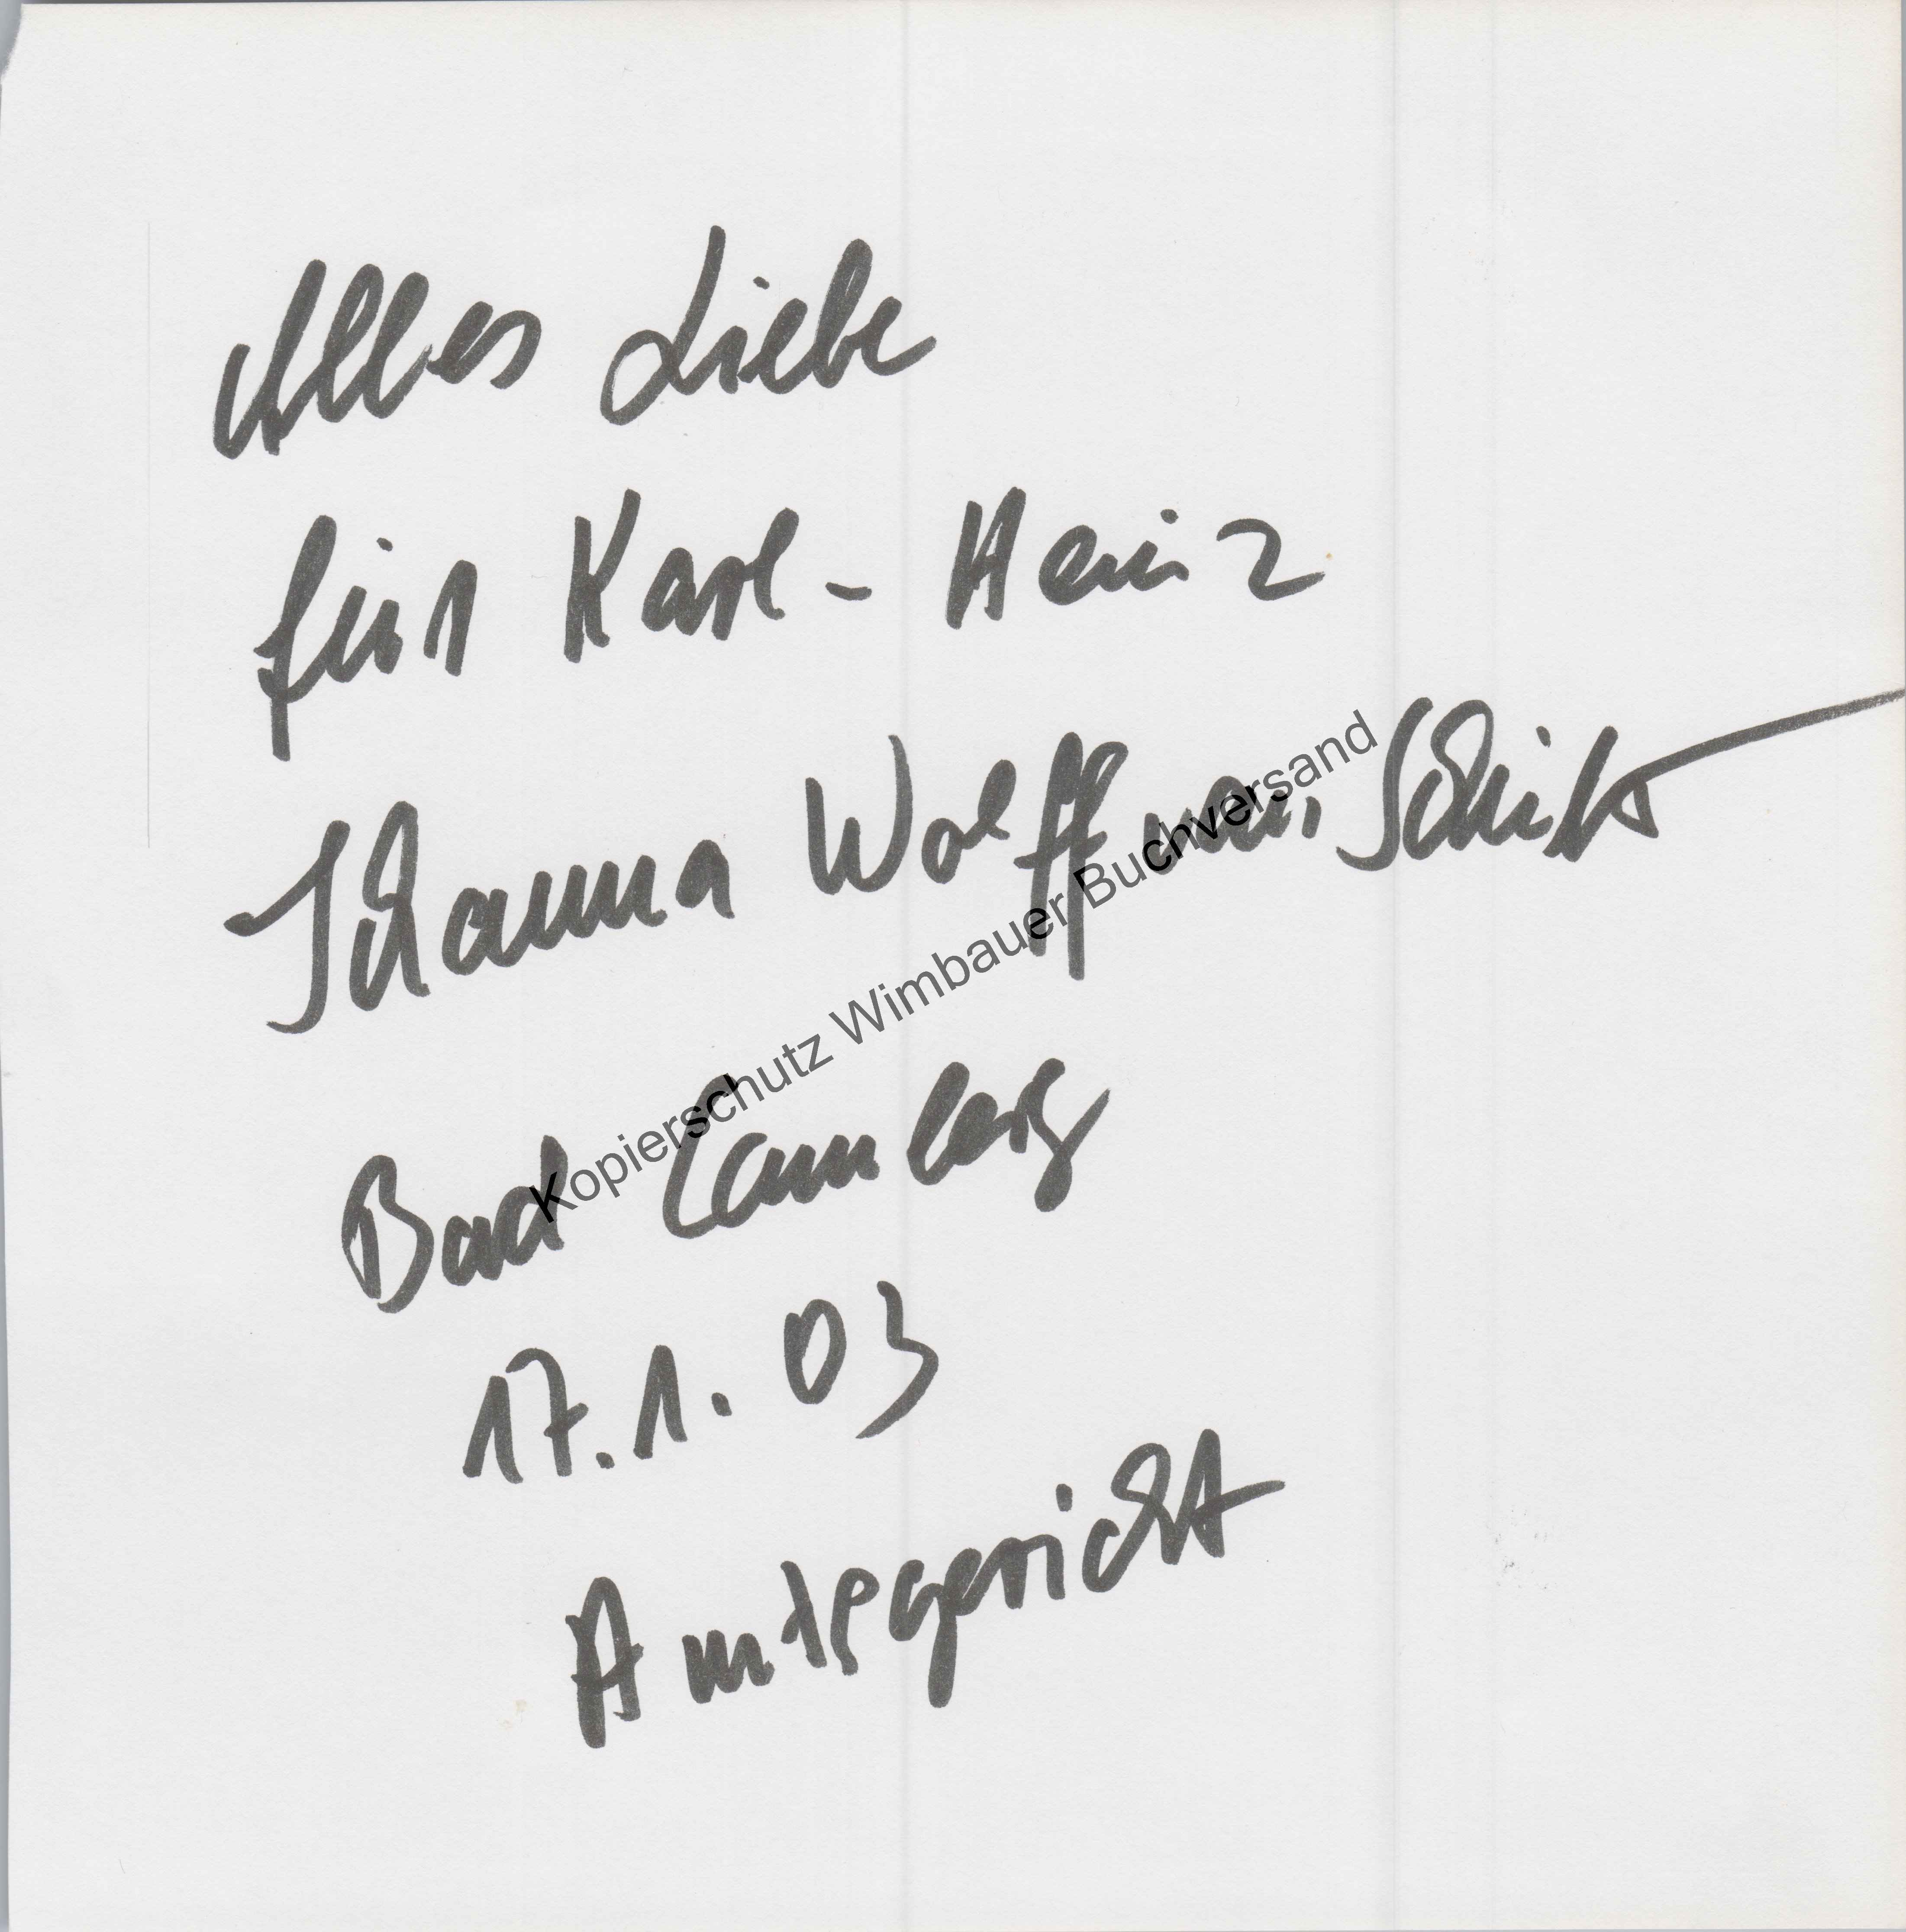 Alles Liebe
für Karl-Heinz
Johanna Wolffmann Schütt
Bad Camberg
17.1.03
Amtsgericht
Kopierschutz Wimbauer Buchversand